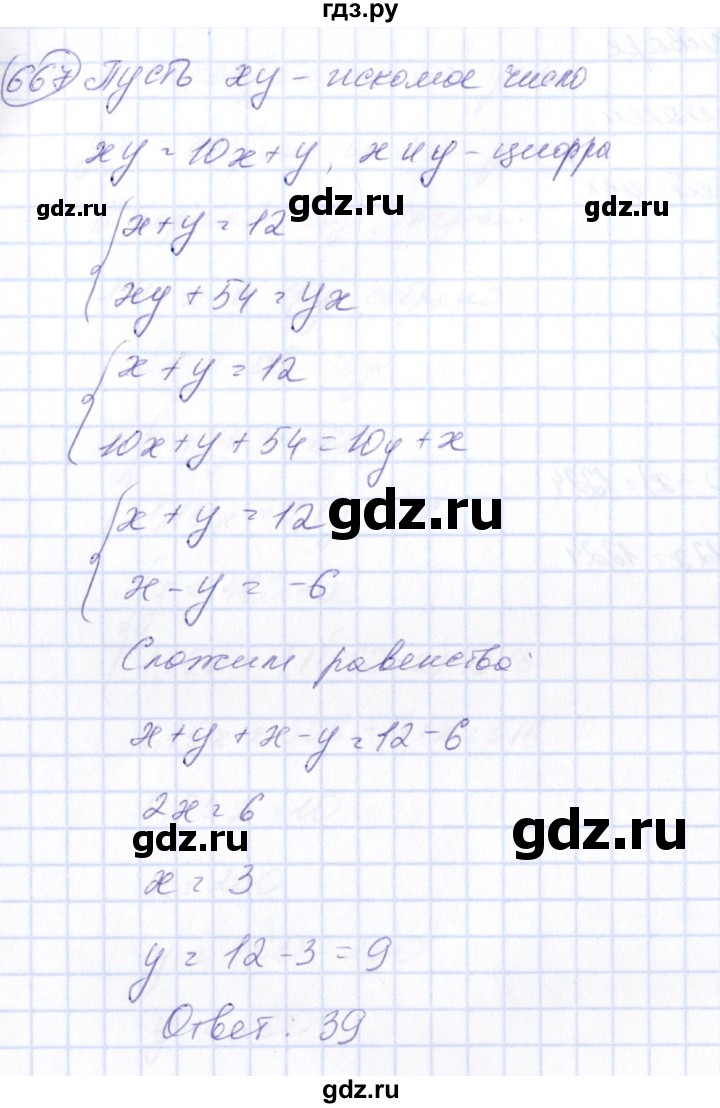 гдз.ру
667 Пусть xy - искомое число
xy = 10x + y, x и y - цифра
gdz.ru gdz.ru gdz.ru
x + y = 12
xy + 54 = yx
x + y = 12
10x + y + 54 = 10y + x
x + y = 12
gdz.ru
x - y = -6
Сложим равенства:
x + y + x - y = 12 - 6
2x = 6
gdz.ru gdz.ru
x = 3
y = 12 - 3 = 9
Ответ: 39
gdz.ru